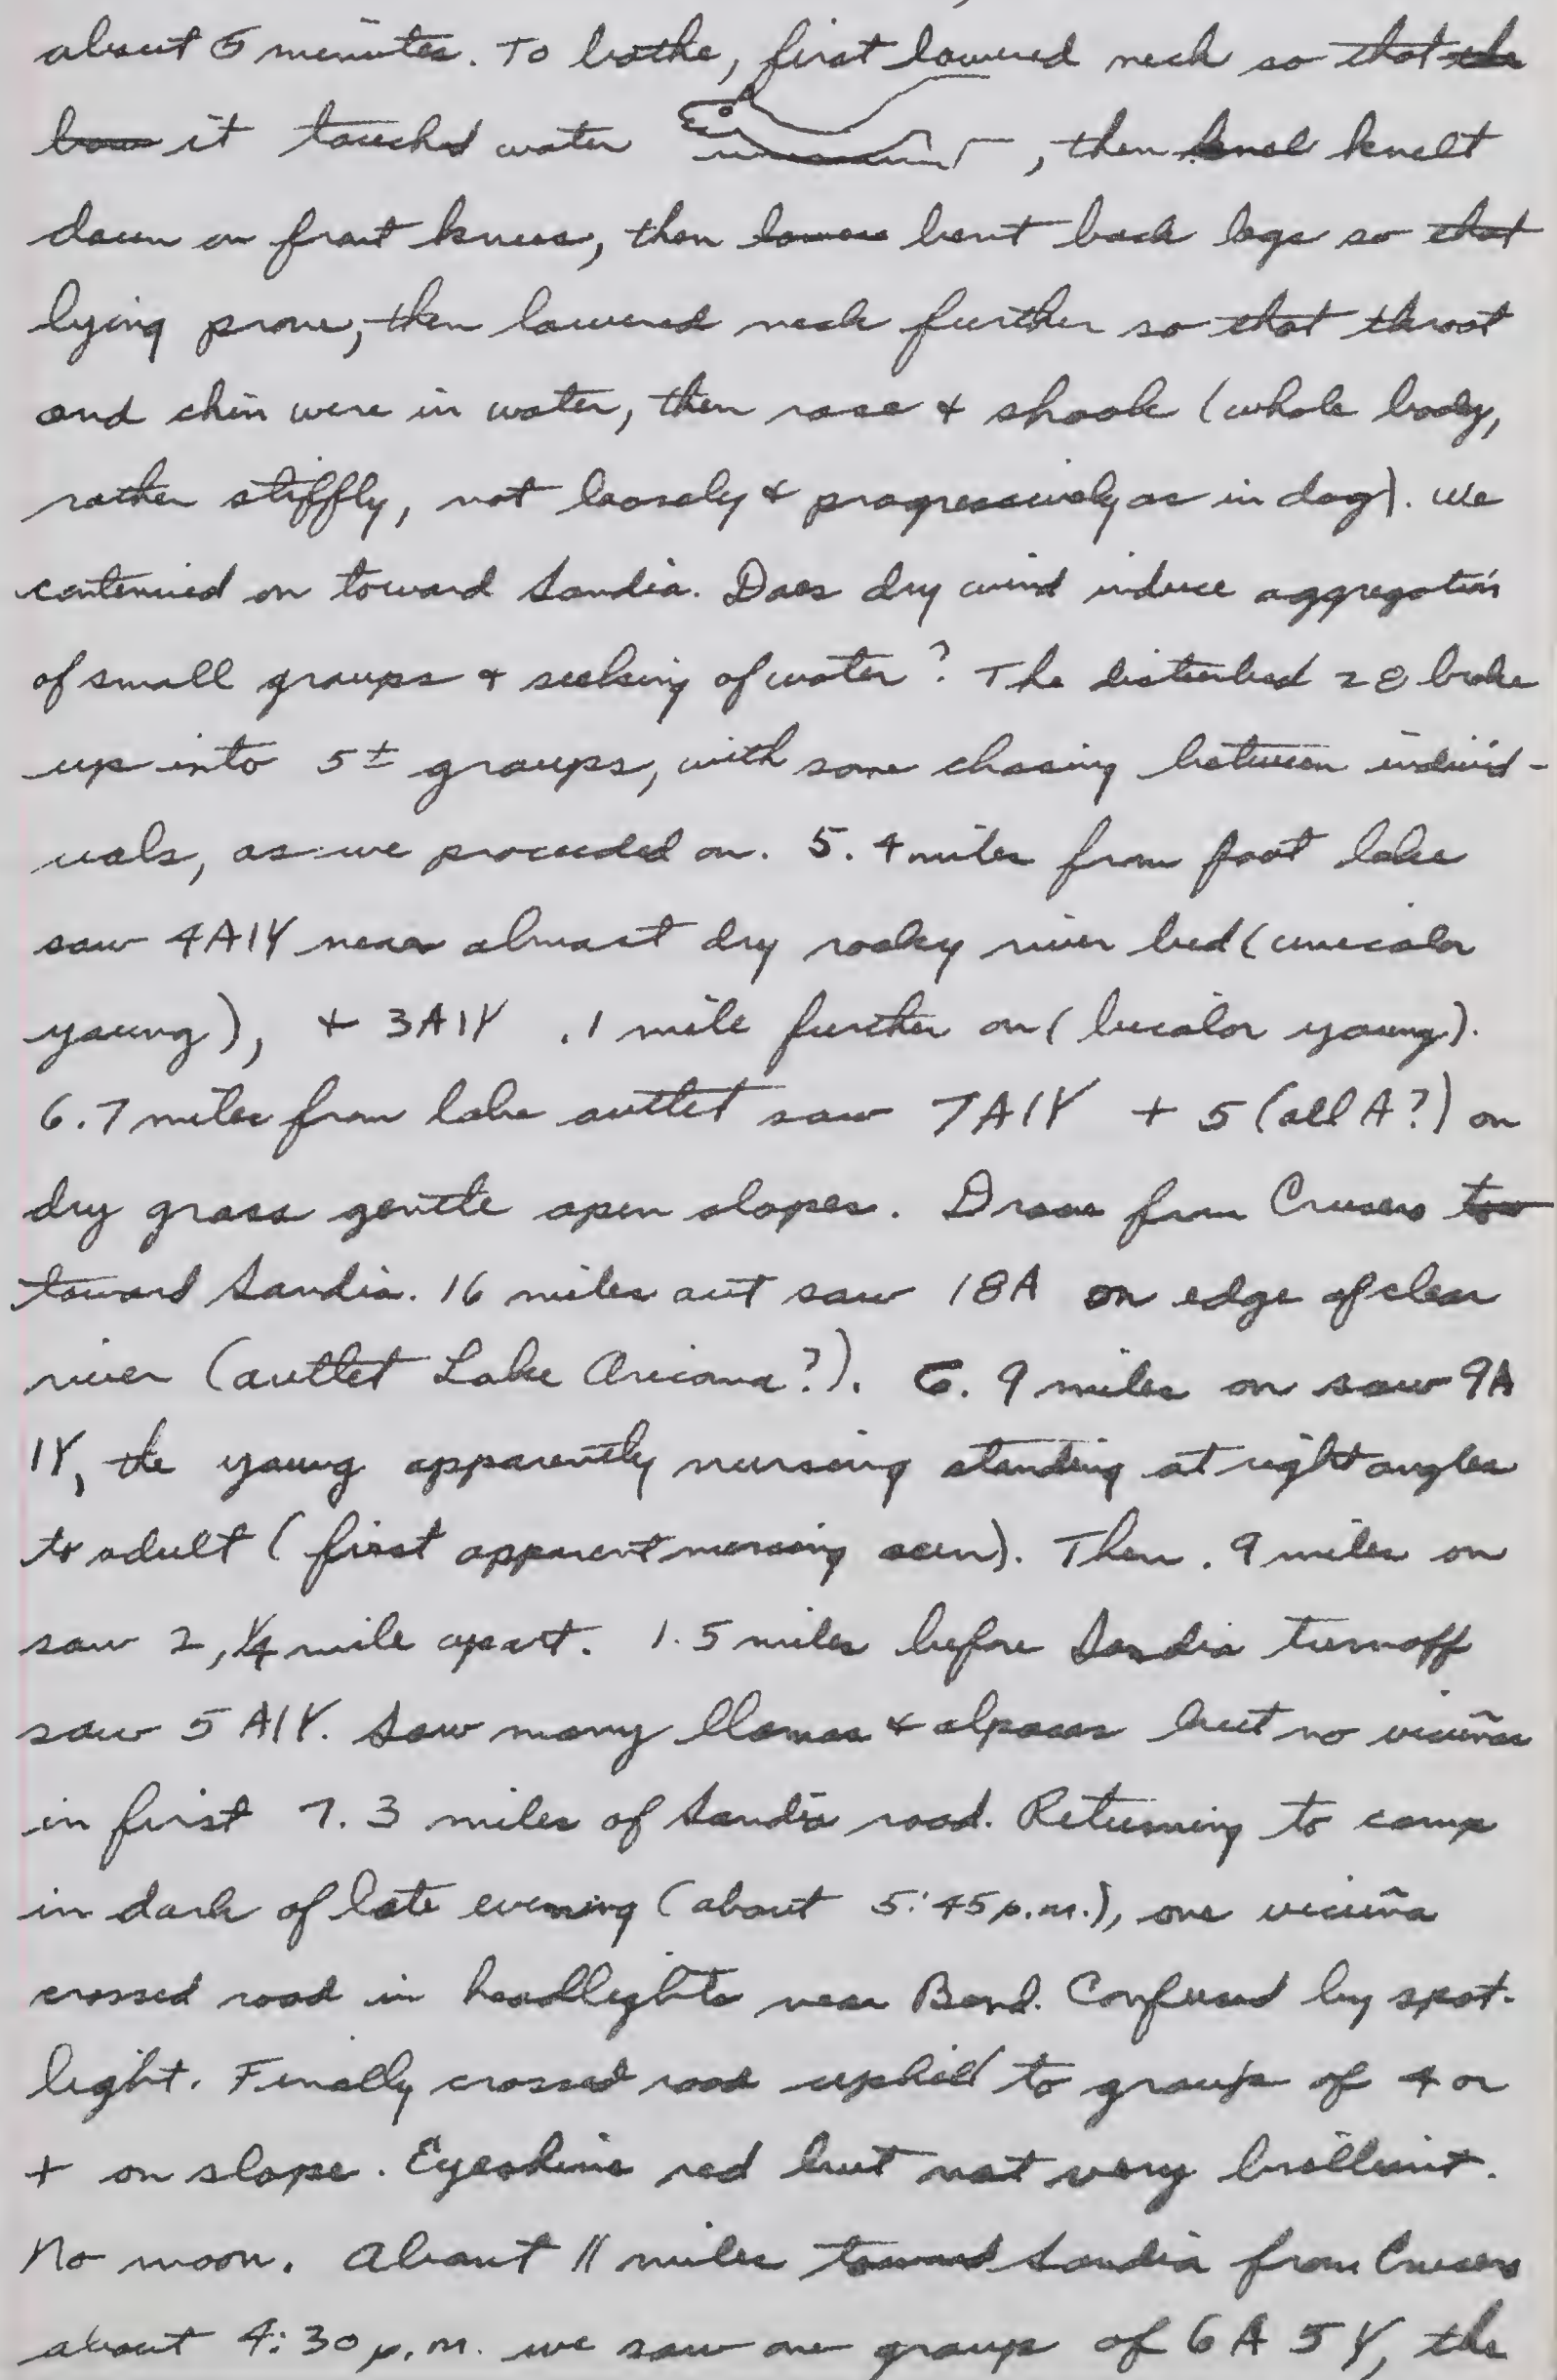 about 5 minutes. To bathe, first lowered neck so that the
bow it touched water , then knel knelt
down on front knees, then lowere bent back legs so that
lying prone, then lowered neck further so that throat
and chin were in water, then rose + shook (whole body,
rather stiffly, not loosely + progressively as in dog). We
continued on toward Sandia. Does dry wind induce aggregation
of small groups + seeking of water? The disturbed 28 broke
up into 5± groups, with some chasing between individ-
uals, as we proceeded on. 5.4 miles from foot lake
saw 4A1Y near almost dry rocky river bed (unicolor
young), + 3A1Y .1 mile further on (bicolor young).
6.7 miles from lake outlet saw 7A1Y + 5 (all A?) on
dry grass gentle open slopes. Drove from Crusero tow
toward Sandia. 16 miles out saw 18A on edge of clear
river (outlet Lake Aricoma?). 6.9 miles on saw 9A
1Y, the young apparently nursing standing at right angles
to adult (first apparent nursing seen). Then .9 miles on
saw 2, 1/4 mile apart. 1.5 miles before Sandia turnoff
saw 5A1Y. Saw many llamas + alpacas but no vicuñas
in first 7.3 miles of Sandia road. Returning to camp
in dark of late evening (about 5:45 p.m.), one vicuña
crossed road in headlights near Band. Confused by spot-
light. Finally crossed road uphill to group of 4 or
+ on slope. Eyeshine red but not very brilliant.
No moon. About 11 miles toward Sandia from Crusero
about 4:30 p.m. we saw one group of 6A 5Y, the